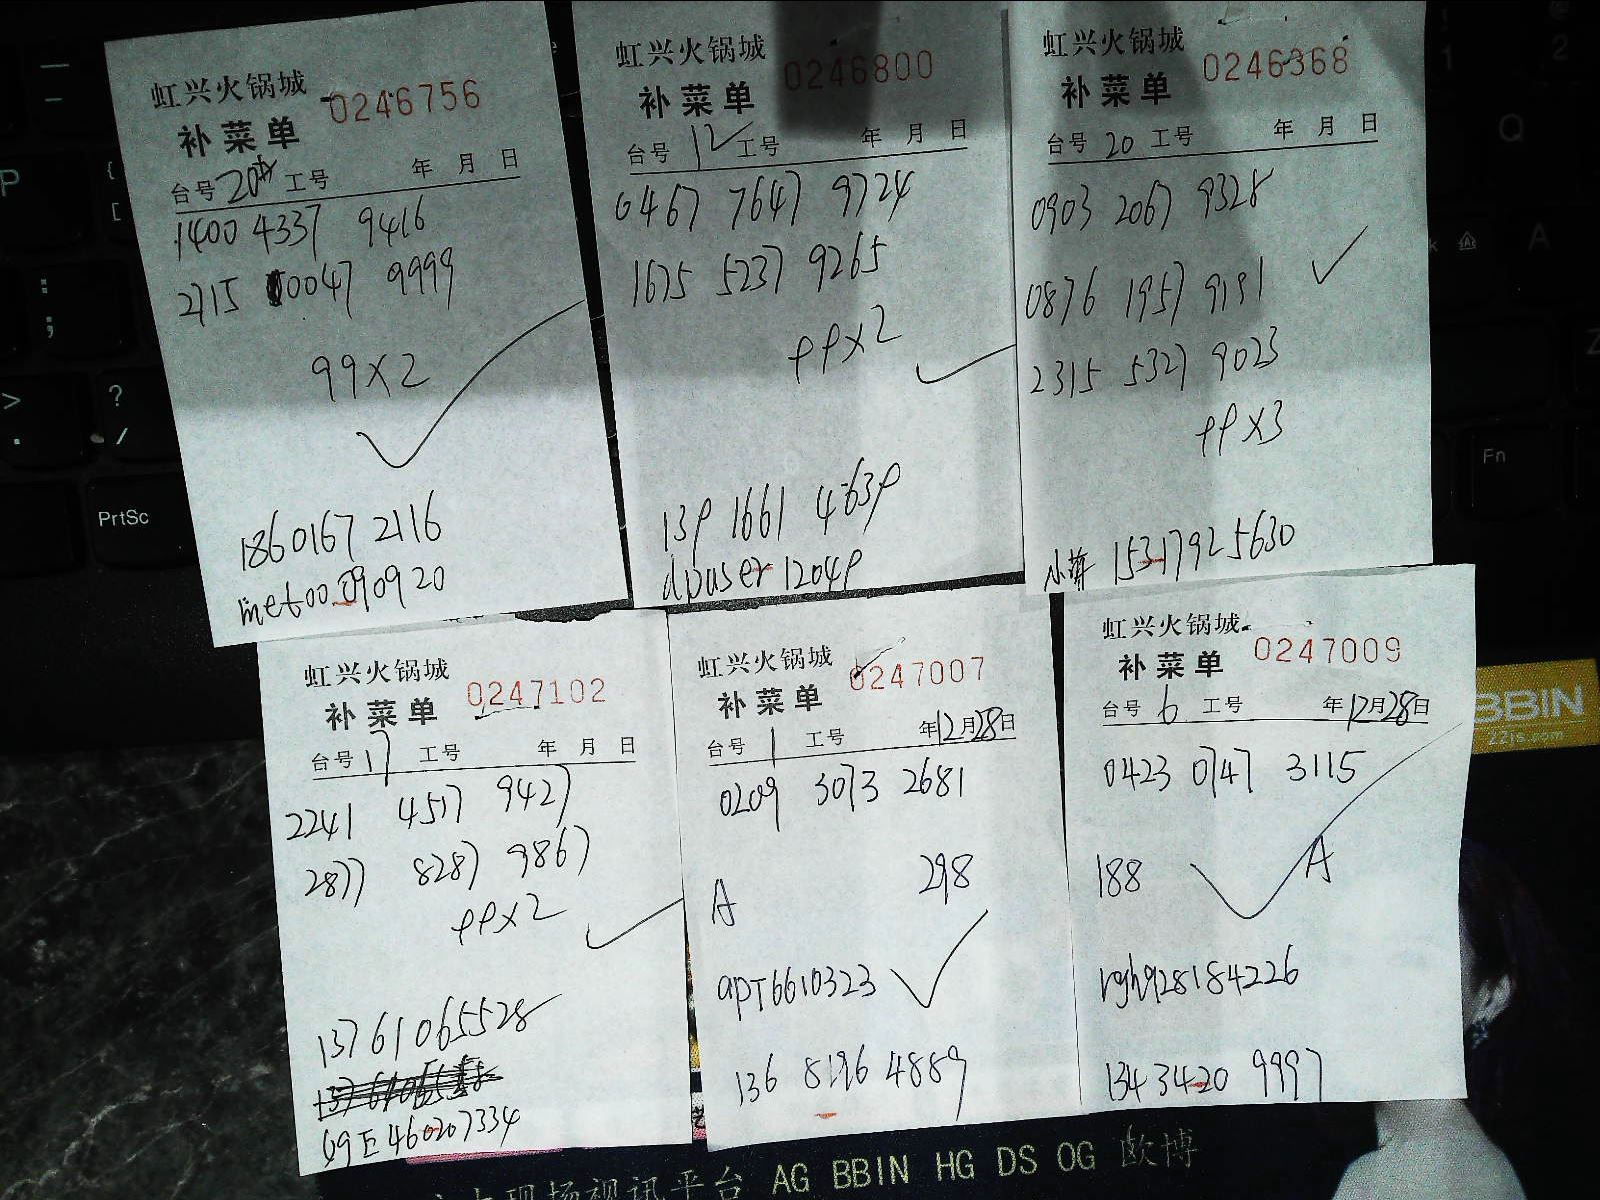 虹兴火锅城
0246756
补菜单
台号 20 工号 年 月 日
1400 4337 9416
2715 0047 9999
99X2
1860167 2116
met00.090920
虹兴火锅城
0246800
补菜单
台号 12 工号 年 月 日
0467 7647 9724
1675 5237 9265
99X2
139 1661 4639
dpuser12049
虹兴火锅城
0246368
补菜单
台号 20 工号 年 月 日
0903 2067 9328
0876 1957 9191
2315 5327 9023
99X3
15317925630
虹兴火锅城
0247102
补菜单
台号 17 工号 年 月 日
2241 4517 9427
2877 8287 9867
99X2
13761065528
69E460207334
虹兴火锅城
0247007
补菜单
台号 1 工号 年12月28日
0209 3073 2681
A 298
apT6610323
136 8196 4889
虹兴火锅城
0247009
补菜单
台号 6 工号 年12月28日
0423 0747 3115
188 A
rgh928184226
134 3420 9997
BBIN
22is.com
现场视讯平台 AG BBIN HG DS OG 欧博
PrtSc
Fn
P
Q
A